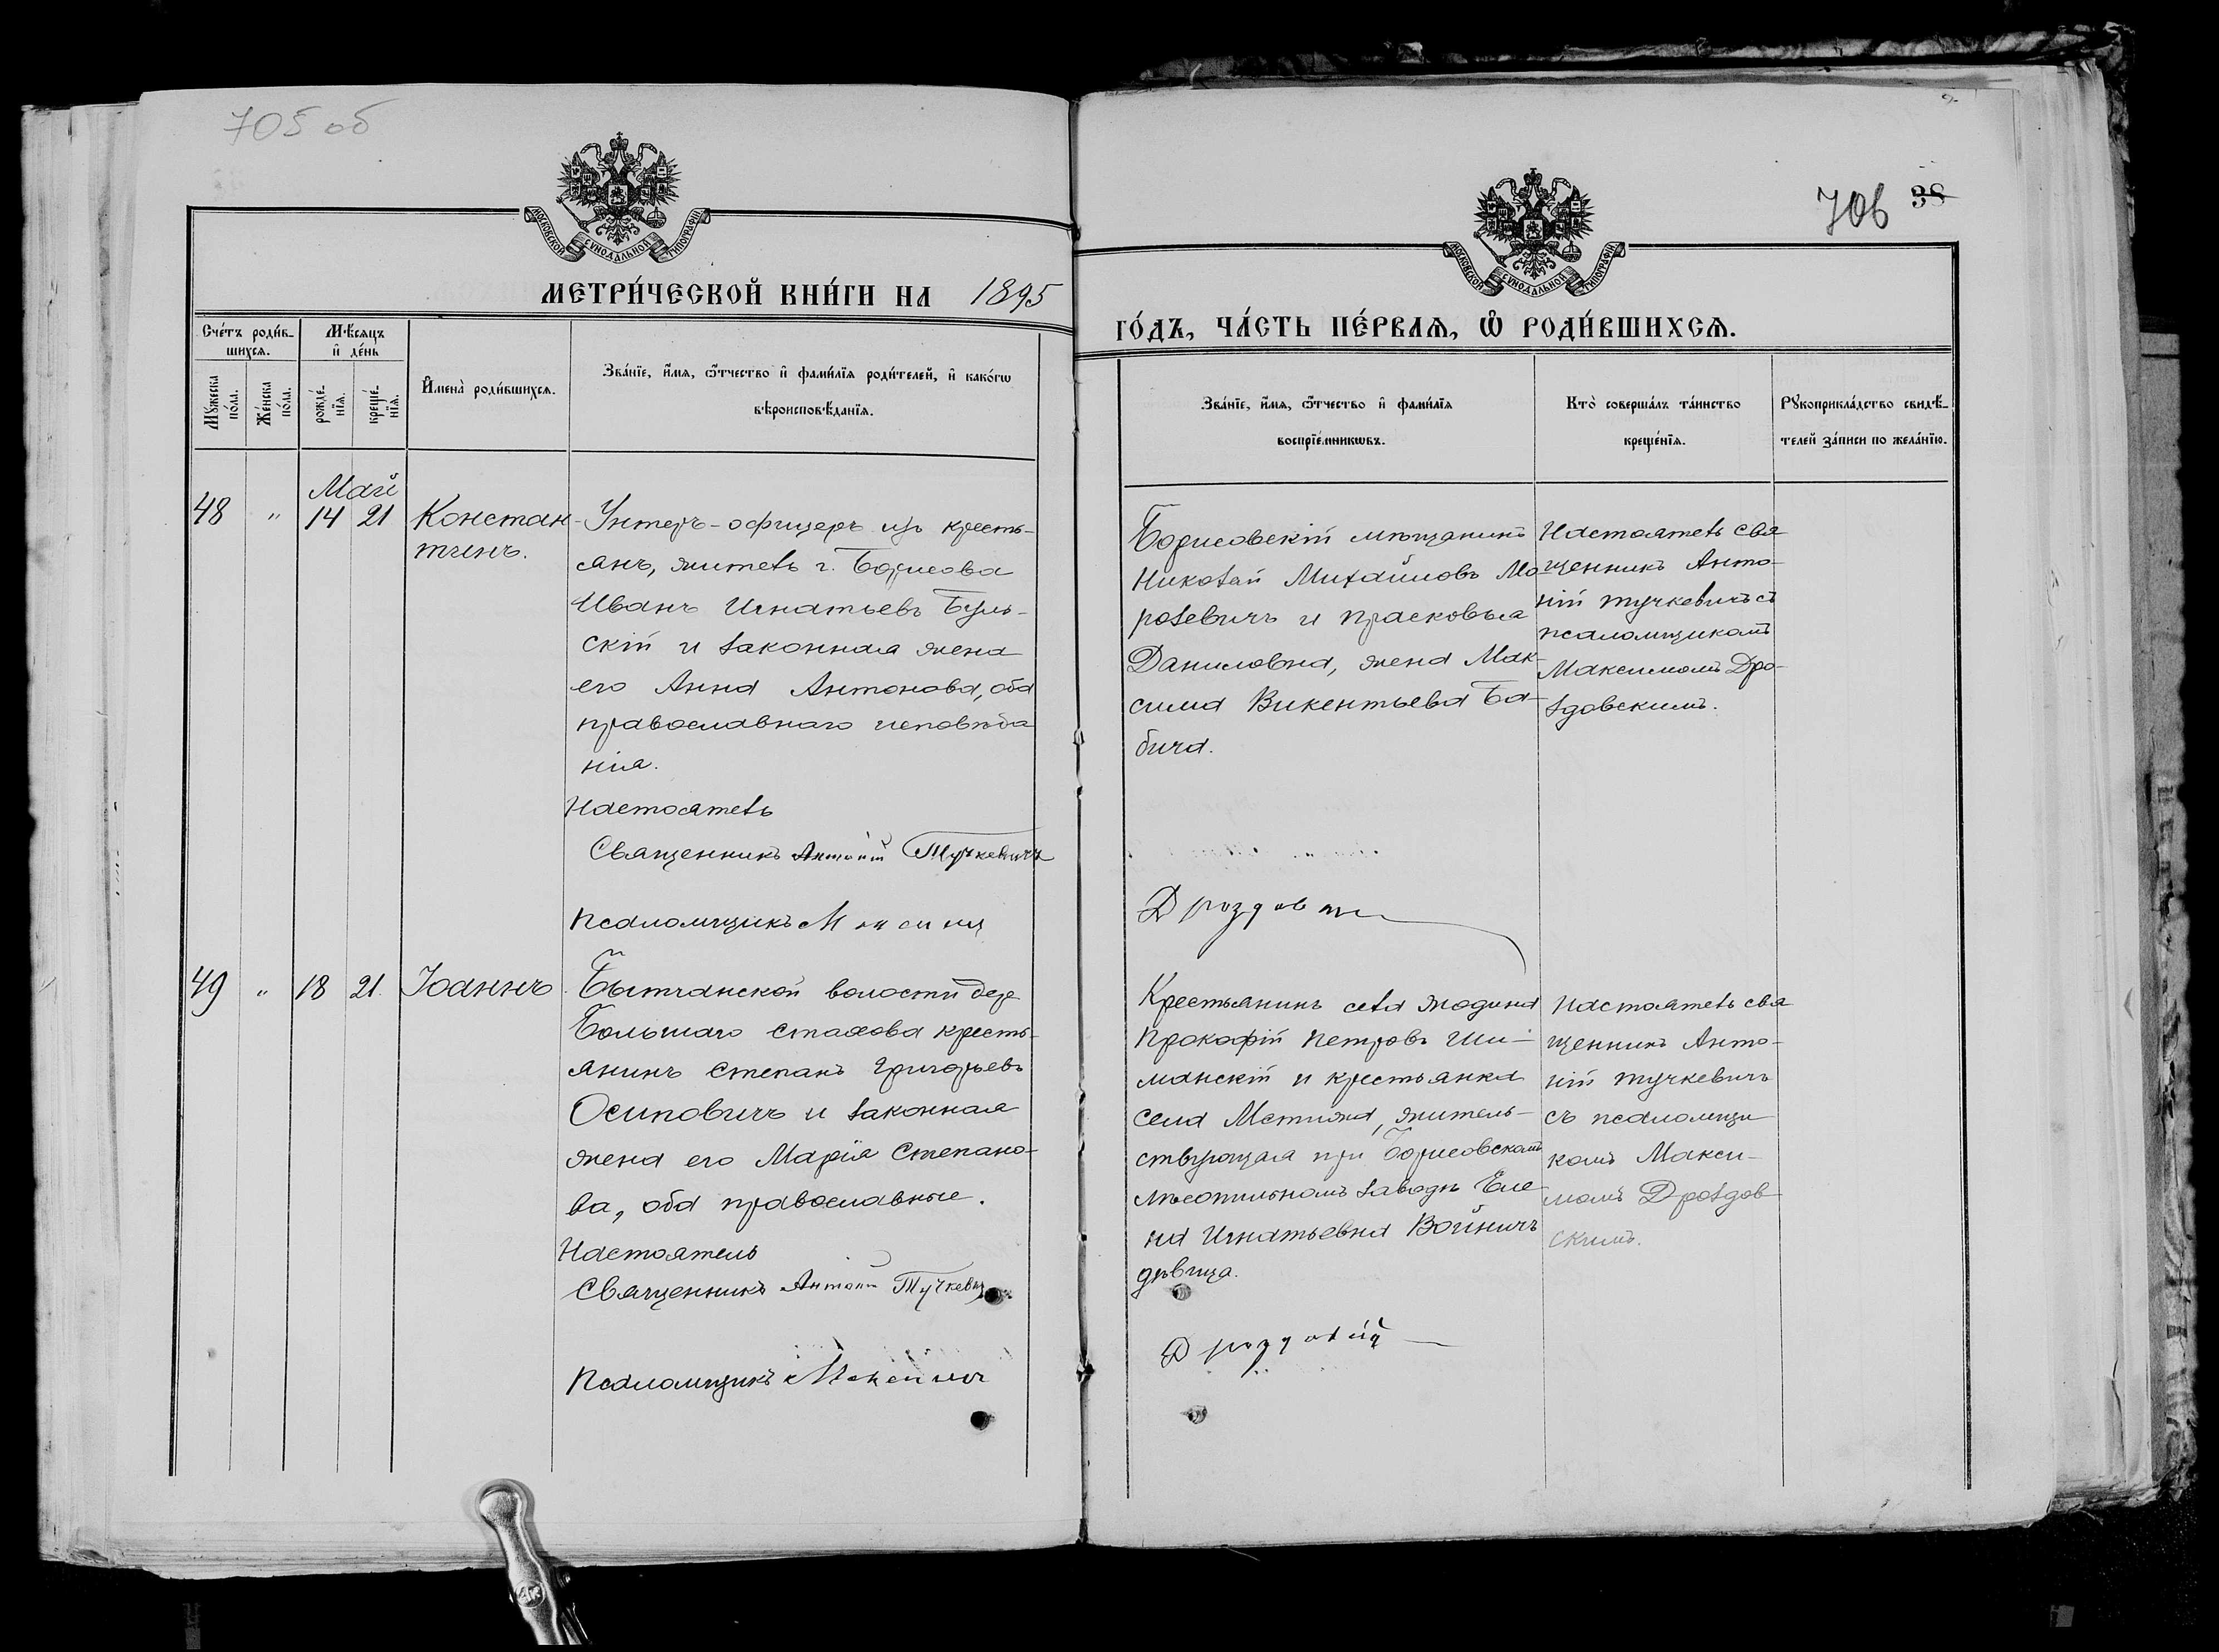 705 об
МОСКОВСКОЙ СѴНОДАЛЬНОЙ ТИПОГРАФІИ
МЕТРИ́ЧЕСКОЙ КНИ́ГИ НА 1895
Сче́тъ роди́в-
шихся.
Мѣ́сяцъ
и҆ де́нь
Мꙋ́жеска
по́ла.
Же́нска
по́ла.
рожде́-
нїя.
креще́-
нїя.
И҆мена̀ роди́вшихся.
Зва́нїе, и҆́мя, ѻ҆́тчество и҆ фами́лїя роди́телей, и҆ како́гѡ
вѣроисповѣ́данїя.
Май
48 " 14 21 Констан-
тинъ.
Унтеръ-офицеръ изъ кресть-
янъ, житель г. Борисова
Иванъ Игнатьевъ Буль-
скій и законная жена
его Анна Антонова, оба
православнаго исповѣда
нія.
Настоятель
Священникъ Антоній Тучкевичъ
Псаломщикъ Максимъ
49 " 18 21. Іоаннъ.
Бытчанской волости дер
Большаго Стахова кресть-
янинъ Степанъ Григорьевъ
Осиповичъ и законная
жена его Марія Степано-
ва, оба православные.
Настоятель
Священникъ Антоній Тучкевичъ
Псаломщикъ Максимъ
706 38
МОСКОВСКОЙ СѴНОДАЛЬНОЙ ТИПОГРАФІИ
ГО́ДЪ, ЧА́СТЬ ПЕ́РВАЯ, Ѽ РОДИ́ВШИХСЯ.
Зва́нїе, и҆́мя, ѻ҆́тчество и҆ фами́лїя
воспрїе́мникѡвъ.
Кто̀ соверша́лъ та́инство
креще́нїя.
Рꙋкоприкла́дство свидѣ́-
телей за́писи по жела́нїю.
Борисовскій мѣщанинъ
Николай Михайловъ Мо-
розевичъ и Прасковья
Даниловна, жена Мак-
сима Викентьева Ба-
бича.
Настоятель свя
щенникъ Анто-
ній Тучкевичъ съ
псаломщикомъ
Максимомъ Дро-
здовскимъ.
Крестьянинъ села Жодина
Прокофій Петровъ Ши-
манскій и крестьянка
села Мстижа, житель-
ствующая при Борисовскомъ
лѣсопильномъ заводѣ Еле-
на Игнатьевна Войничъ
дѣвица.
Настоятель свя
щенникъ Анто-
ній Тучкевичъ
съ псаломщи
комъ Макси-
момъ Дроздов-
скимъ.